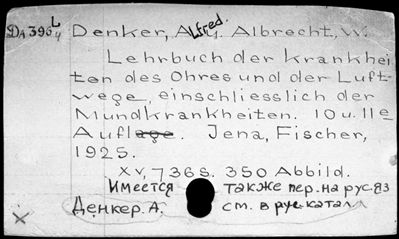 Д 396 L/4
Denker, Alfred. u. Albrecht, W.
Lehrbuch der Krankhei-
ten des Ohres und der Luft-
wege, einschliesslich der
Mundkrankheiten. 10 u. 11e
Auflage. Jena, Fischer,
1925.
XV, 736 S. 350 Abbild.
Имеется также пер. на рус. яз
Денкер. А. см. в рус. катал